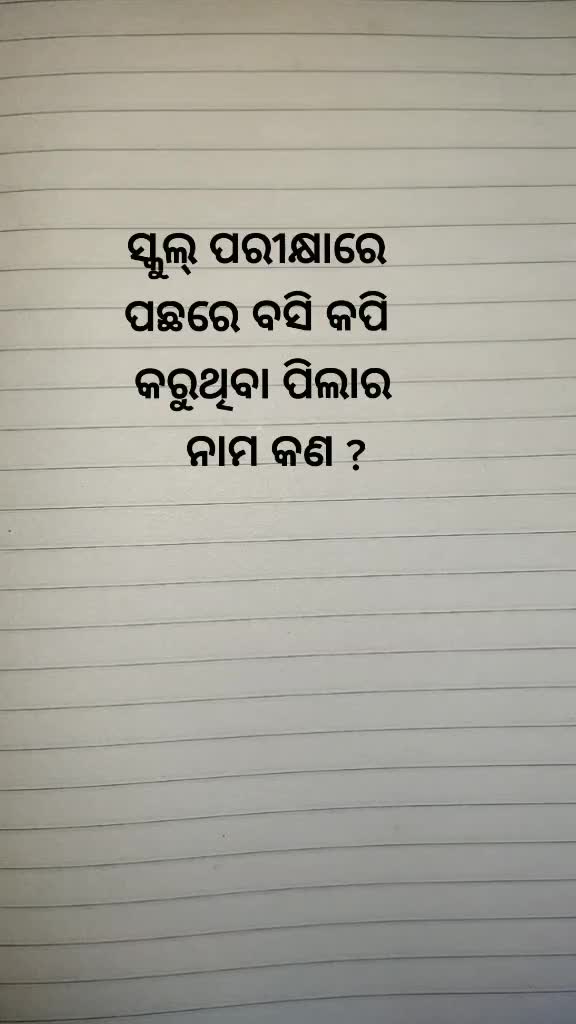 ସ୍କୁଲ୍ ପରୀକ୍ଷାରେ
ପଛରେ ବସି କପି
କରୁଥିବା ପିଲାର
ନାମ କଣ ?